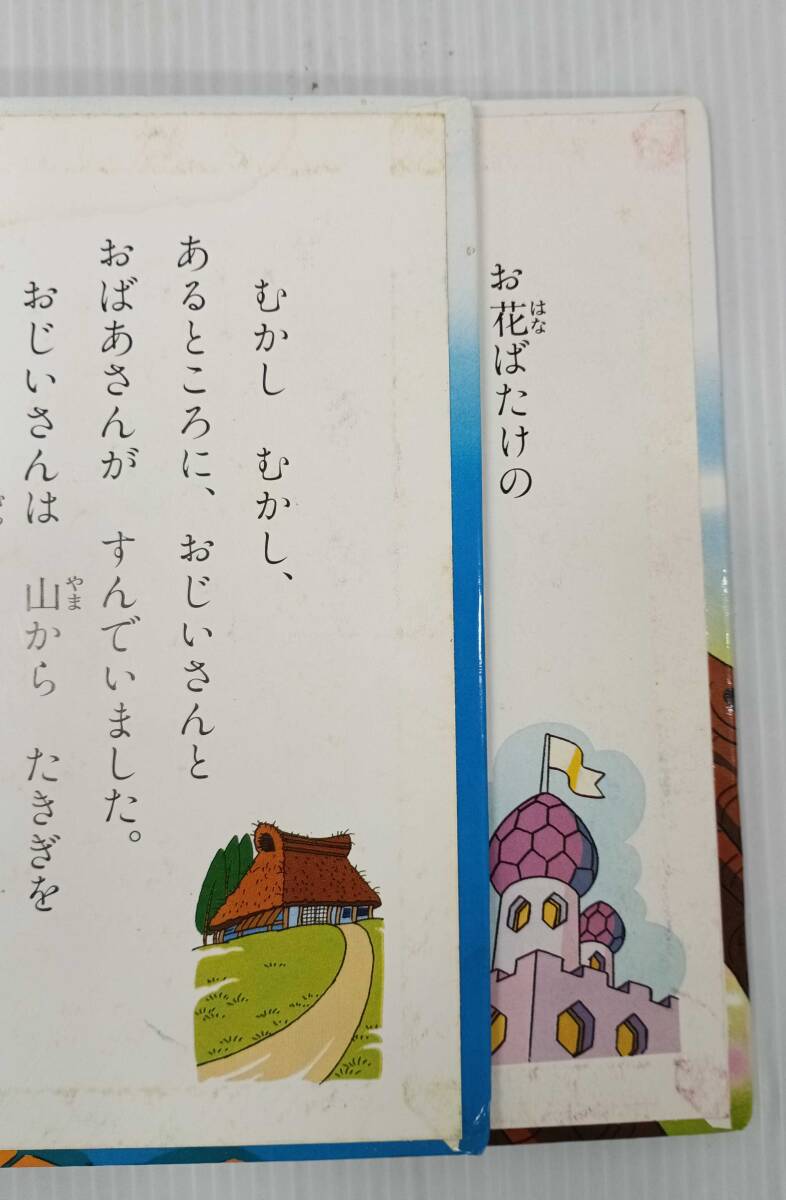 お花ばたけの
はな
むかし　むかし、
あるところに、おじいさんと
おばあさんが　すんでいました。
おじいさんは　山から　たきぎを
やま